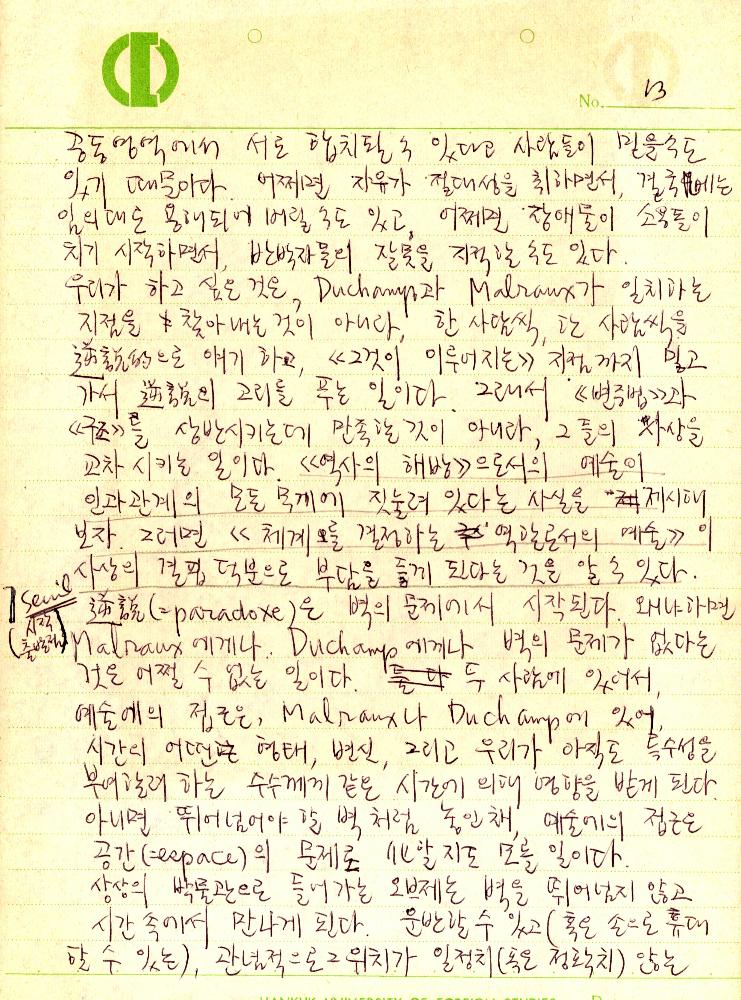 No. 13
공동영역에서 서로 합치될 수 있다고 사람들이 믿을 수도
있기 때문이다. 어쩌면 자유가 절대성을 취하면서, 결국에는
임의대로 용해되어 버릴 수도 있고, 어쩌면 장애물이 소용돌이
치기 시작하면서, 반박자들의 잘못을 지적할 수도 있다.
우리가 하고 싶은 것은, Duchamp과 Malraux가 일치하는
지점을 찾아내는 것이 아니라, 한 사람씩, 한 사람씩을
逆說的으로 얘기하고, 《그것이 이루어지는》 지점까지 밀고
가서 逆說의 고리를 푸는 일이다. 그래서 《변주법》과
《구조》를 상반시키는데 만족하는 것이 아니라, 그들의 사상을
교차시키는 일이다. 《역사의 해방》으로서의 예술이
인과관계의 모든 무게에 짓눌려 있다는 사실을 제시해
보자. 그러면 《체계를 결정하는 역할로서의 예술》이
사상의 결핍 덕분으로 부담을 즐기게 된다는 것을 알 수 있다.
seuil
(시작
출발점)
逆說(=paradoxe)은 벽의 문제에서 시작된다. 왜냐하면
Malraux에게나 Duchamp에게나 벽의 문제가 없다는
것은 어쩔 수 없는 일이다. 두 사람에 있어서,
예술에의 접근은, Malraux나 Duchamp에 있어,
시간의 어떤 형태, 변신, 그리고 우리가 아직도 특수성을
부여하려 하는 수수께끼 같은 시간에 의해 영향을 받게 된다.
아니면 뛰어넘어야 할 벽처럼 놓인 채, 예술에의 접근은
공간(=espace)의 문제로 비할지도 모를 일이다.
상상의 박물관으로 들어가는 오브제는 벽을 뛰어넘지 않고
시간 속에서 만나게 된다. 운반할 수 있고(혹은 손으로 휴대
할 수 있는), 관념적으로 그 위치가 일정치(혹은 정확치) 않는
HANKUK UNIVERSITY OF FOREIGN STUDIES